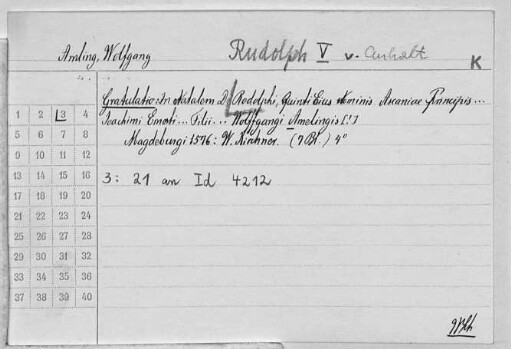 Amling, Wolfgang
Rudolph V v. Anhalt
K
Gratulatio: In Natalem D. Rodolphi, Quinti Eius Nominis Ascaniae Principis...
Joachimi Ernesti... Filii... Wolffgangi Amelingis [!]
Magdeburgi 1576: W. Kirchner. (7 Bl.) 4°
3: 21 an Id 4212
1 2 3 4
5 6 7 8
9 10 11 12
13 14 15 16
17 18 19 20
21 22 23 24
25 26 27 28
29 30 31 32
33 34 35 36
37 38 39 40